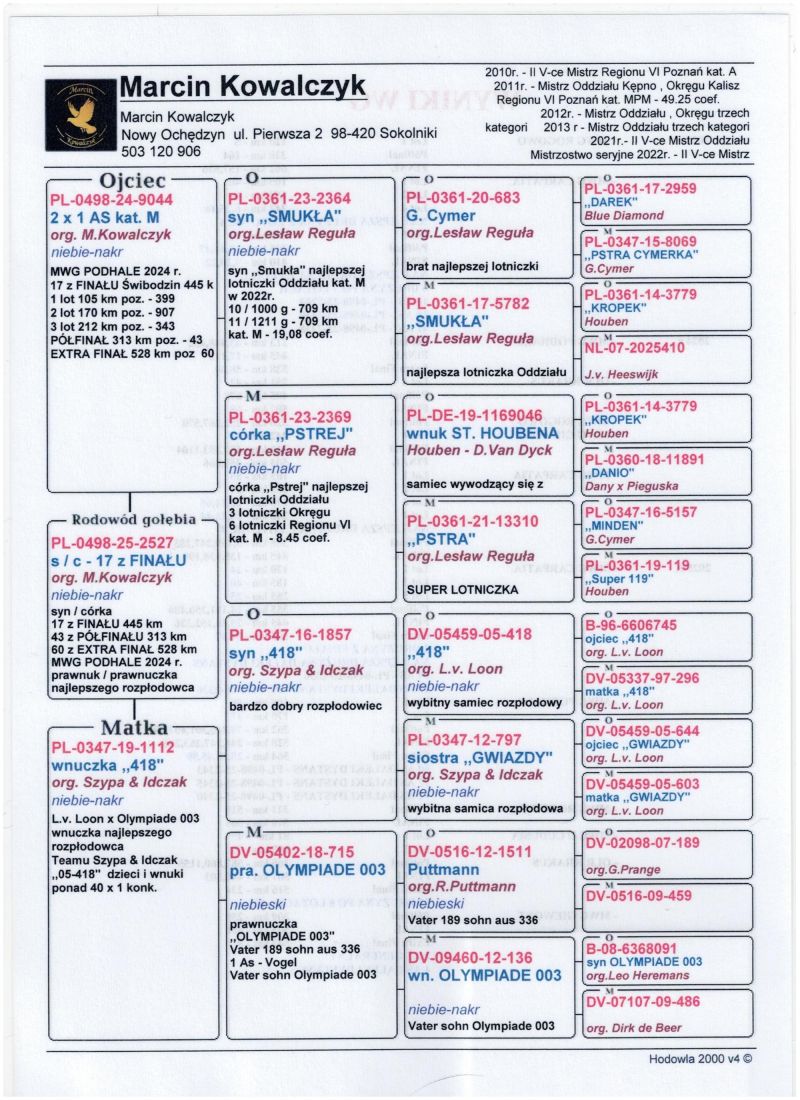 Marcin
Kowalczyk
Marcin Kowalczyk
Marcin Kowalczyk
Nowy Ochędzyn ul. Pierwsza 2 98-420 Sokolniki
503 120 906
2010r. - II V-ce Mistrz Regionu VI Poznań kat. A
2011r. - Mistrz Oddziału Kępno , Okręgu Kalisz
Regionu VI Poznań kat. MPM - 49.25 coef.
2012r. - Mistrz Oddziału , Okręgu trzech
kategorii 2013 r - Mistrz Oddziału trzech kategorii
2021r.- II V-ce Mistrz Oddziału
Mistrzostwo seryjne 2022r. - II V-ce Mistrz
Ojciec
PL-0498-24-9044
2 x 1 AS kat. M
org. M.Kowalczyk
niebie-nakr
MWG PODHALE 2024 r.
17 z FINAŁU Świbodzin 445 k
1 lot 105 km poz. - 399
2 lot 170 km poz. - 907
3 lot 212 km poz. - 343
PÓŁFINAŁ 313 km poz. - 43
EXTRA FINAŁ 528 km poz 60
Rodowód gołębia
PL-0498-25-2527
s / c - 17 z FINAŁU
org. M.Kowalczyk
niebie-nakr
syn / córka
17 z FINAŁU 445 km
43 z PÓŁFINAŁU 313 km
60 z EXTRA FINAŁ 528 km
MWG PODHALE 2024 r.
prawnuk / prawnuczka
najlepszego rozpłodowca
Matka
PL-0347-19-1112
wnuczka ,,418"
org. Szypa & Idczak
niebie-nakr
L.v. Loon x Olympiade 003
wnuczka najlepszego
rozpłodowca
Teamu Szypa & Idczak
,,05-418" dzieci i wnuki
ponad 40 x 1 konk.
O
PL-0361-23-2364
syn ,,SMUKŁA"
org.Lesław Reguła
niebie-nakr
syn ,,Smukła" najlepszej
lotniczki Oddziału kat. M
w 2022r.
10 / 1000 g - 709 km
11 / 1211 g - 709 km
kat. M - 19,08 coef.
M
PL-0361-23-2369
córka ,,PSTREJ"
org.Lesław Reguła
niebie-nakr
córka ,,Pstrej" najlepszej
lotniczki Oddziału
3 lotniczki Okręgu
6 lotniczki Regionu VI
kat. M - 8.45 coef.
O
PL-0347-16-1857
syn ,,418"
org. Szypa & Idczak
niebie-nakr
bardzo dobry rozpłodowiec
M
DV-05402-18-715
pra. OLYMPIADE 003
niebieski
prawnuczka
,,OLYMPIADE 003"
Vater 189 sohn aus 336
1 As - Vogel
Vater sohn Olympiade 003
O
PL-0361-20-683
G. Cymer
org.Lesław Reguła
brat najlepszej lotniczki
M
PL-0361-17-5782
,,SMUKŁA"
org.Lesław Reguła
najlepsza lotniczka Oddziału
O
PL-DE-19-1169046
wnuk ST. HOUBENA
Houben - D.Van Dyck
samiec wywodzący się z
M
PL-0361-21-13310
,,PSTRA"
org.Lesław Reguła
SUPER LOTNICZKA
O
DV-05459-05-418
,,418"
org. L.v. Loon
niebie-nakr
wybitny samiec rozpłodowy
M
PL-0347-12-797
siostra ,,GWIAZDY"
org. Szypa & Idczak
niebie-nakr
wybitna samica rozpłodowa
O
DV-0516-12-1511
Puttmann
org.R.Puttmann
niebieski
Vater 189 sohn aus 336
M
DV-09460-12-136
wn. OLYMPIADE 003
niebie-nakr
Vater sohn Olympiade 003
O
PL-0361-17-2959
,,DAREK"
Blue Diamond
M
PL-0347-15-8069
,,PSTRA CYMERKA"
G.Cymer
O
PL-0361-14-3779
,,KROPEK"
Houben
M
NL-07-2025410
J.v. Heeswijk
O
PL-0361-14-3779
,,KROPEK"
Houben
M
PL-0360-18-11891
,,DANIO"
Dany x Pieguska
O
PL-0347-16-5157
,,MINDEN"
G.Cymer
M
PL-0361-19-119
,,Super 119"
Houben
O
B-96-6606745
ojciec ,,418"
org. L.v. Loon
M
DV-05337-97-296
matka ,,418"
org. L.v. Loon
O
DV-05459-05-644
ojciec ,,GWIAZDY"
org. L.v. Loon
M
DV-05459-05-603
matka ,,GWIAZDY"
org. L.v. Loon
O
DV-02098-07-189
org.G.Prange
M
DV-0516-09-459
O
B-08-6368091
syn OLYMPIADE 003
org.Leo Heremans
M
DV-07107-09-486
org. Dirk de Beer
Hodowla 2000 v4 ©